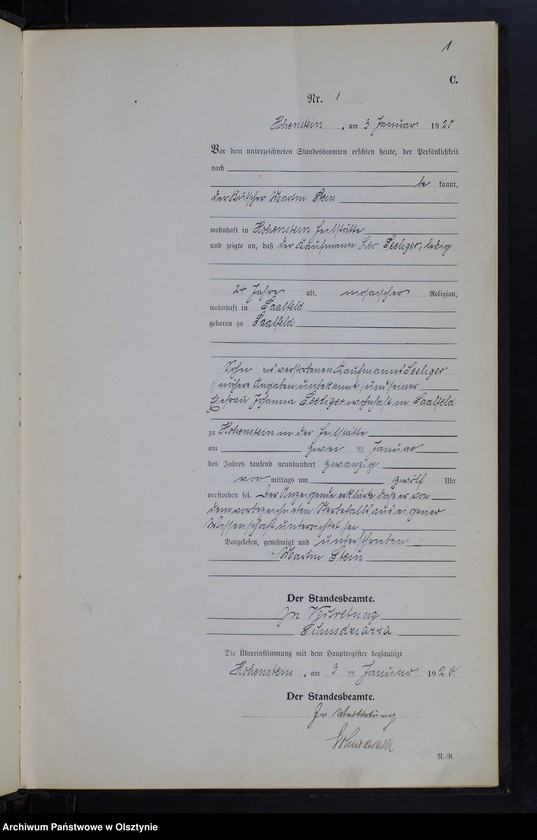 1
C.
Nr. 1
Hohenstein, am 3 Januar 1920
Vor dem unterzeichneten Standesbeamten erschien heute, der Persönlichkeit
nach
be kannt,
der Kutscher Martin Stein
wohnhaft in Hohenstein Heilstätte
und zeigte an, daß der Kaufmann Leo Seeliger, ledig
24 Jahre alt, mosaischer Religion,
wohnhaft in Saalfeld
geboren zu Saalfeld
Sohn des verstorbenen Kaufmanns Seeliger
nähere Angaben unbekannt und seiner
Ehefrau Johanna Seeliger wohnhaft in Saalfeld
zu Hohenstein in der Heilstätte
am zwei ten Januar
des Jahres tausend neunhundert zwanzig
vor mittags um zwölf Uhr
verstorben sei. Der Anzeigende erklärte, daß er von
dem vorbezeichneten Sterbefall aus eigener
Wissenschaft unterrichtet sei
Vorgelesen, genehmigt und unterschrieben
Martin Stein
Der Standesbeamte.
In Vertretung
Die Übereinstimmung mit dem Hauptregister beglaubigt
Hohenstein, am 3 ten Januar 1920.
Der Standesbeamte.
In Vertretung
N.-R.
Archiwum Państwowe w Olsztynie